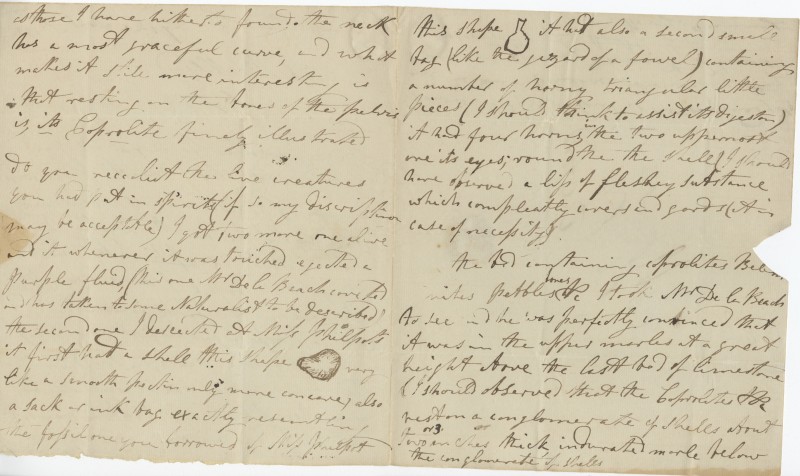 as those I have hitherto found. the neck
has a most graceful curve, and what
makes it still more interesting is
that resting on the bones of the pelvis
is its Coprolite finely illustrated
do you recollect the live creatures
you had put in spirits (if so my discription
may be acceptable) I got two more one alive
and it whenever it was touched ejected a
purple fluid, (this one Mr De la Beach
and has taken to some Naturalist to be described)
the second one I desected at Miss Philpots
it first had a shell this shape very
like a smooth only more concave, also
a sack or ink bag exactly resembling
the fossil one you borrowed of Miss Philpot
this shape it had also a second small
bag (like the gizzard of a fowel) containing
a number of horny triangular little
pieces (I should think to assist its digestion)
it had four horns, the two uppermost
are its eyes; round the the shell (I should
have observed a lip of fleshey substance
which compleatly covers and gards (it in
case of necessity).
the bed containing coprolites Belem
nites pebbles bones &c I took Mr De la Beach
to see and he was perfectly convinced that
it was in the upper marles at a great
height above the last bed of limestone
(I should observed that the Coprolites &c
rest on a conglomerate of shells about
two or 3 inches thick, indurated marle below
the conglomerate of shells